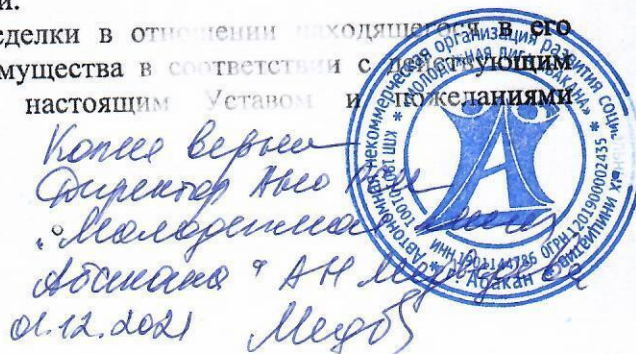 и.
сделки в отношении находящегося в его
имущества в соответствии с действующим
настоящим Уставом и пожеланиями
Копия верна
Директор АНО РСИ
"Молодежная лига
Абакана" А Н
01.12.2021
Автономная некоммерческая организация развития социальных инициатив
"МОЛОДЕЖНАЯ ЛИГА АБАКАНА"
ИНН 1901144786 ОГРН 1201900002435
г. Абакан